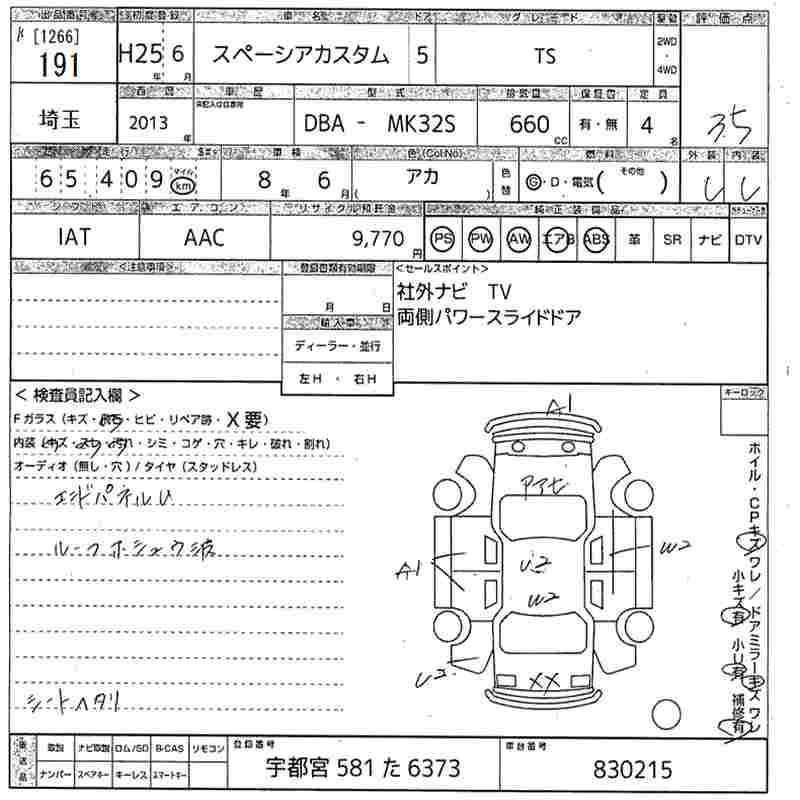 出品番号 初度登録 車名 ドア グレード 駆動 評価点
[1266]
191 H25年 6月 スペーシアカスタム 5 TS 2WD・4WD
埼玉 西暦 車歴 型式 排気量 保証書 定員 3.5
2013年 DBA - MK32S 660cc 有・無 4名
走行 車検 色(Col.No) 燃料 外装 内装
65,409 マイル km 8年 6月 アカ 色替 Ⓖ・D・電気 (その他)
シフト エアコン リサイクル預託金 純正装備品
IAT AAC 9,770円 PS PW AW エアB ABS 革 SR ナビ DTV
<注意事項> 登録書類有効期限 <セールスポイント>
月 日 社外ナビ TV
輸入車 両側パワースライドドア
ディーラー・並行
左H ・ 右H
< 検査員記入欄 > キーロック
Fガラス (キズ・ヒビ・リペア跡・X要)
内装 (キズ・スレ・汚れ・シミ・コゲ・穴・キレ・破れ・割れ)
オーディオ (無し・穴) / タイヤ (スタッドレス)
エンドパネルU
ルーフホシュウ波
シートヘタリ
A1
A1
U2
W2
W2
U2
XX
ホイル・CPキズワレ/ドアミラーキズワレ
小キズ有 小U有 補修有
車返品 取説 ナビ取説 ロム/SD B-CAS リモコン 登録番号 車台番号
ナンバー スペアキー キーレス スマートキー 宇都宮 581 た 6373 830215